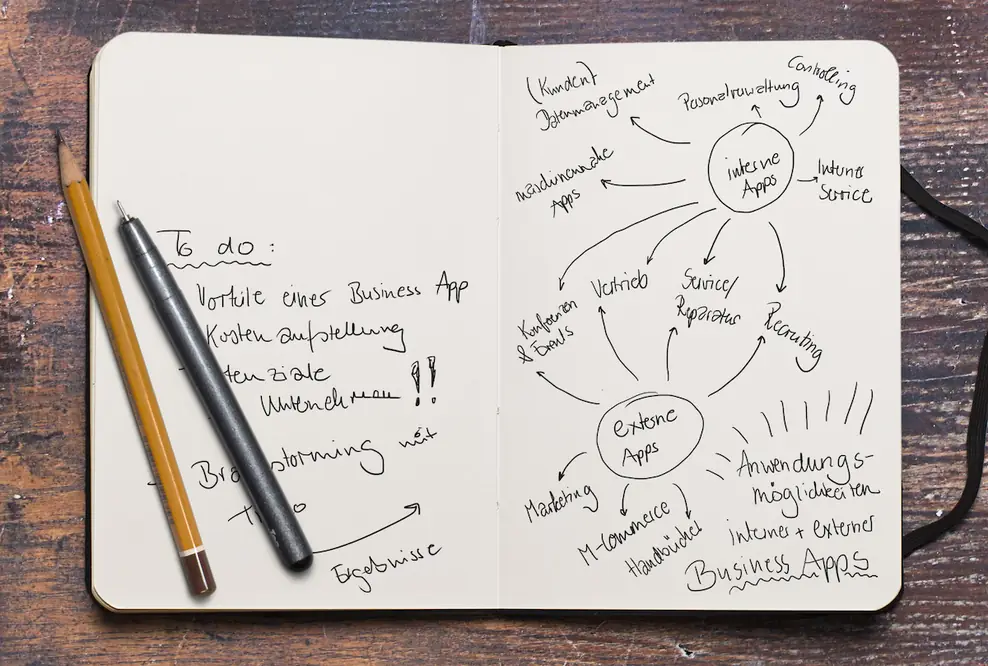 To do:
Vorteile einer Business App
Kostenaufstellung
tenziale
Unternehmen !!
storming mit
Ergebnisse
(Kunden)
Datenmanagement
Personalverwaltung
Controlling
maschinennahe
Apps
interne
Apps
Interner
Service
Konferenzen
& Events
Vertrieb
Service/
Reparatur
Recruiting
externe
Apps
Marketing
M-Commerce
Handbücher
Anwendungs-
möglichkeiten
interner + externer
Business Apps